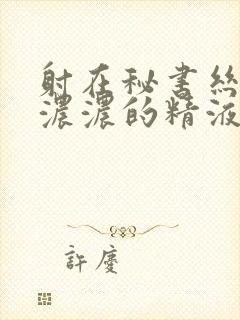 射在秘書絲
濃濃的精液
許慶